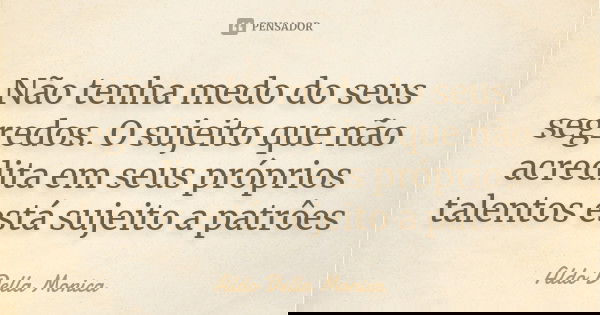 PENSADOR
Não tenha medo do seus
segredos. O sujeito que não
acredita em seus próprios
talentos está sujeito a patrôes
Aldo Della Monica